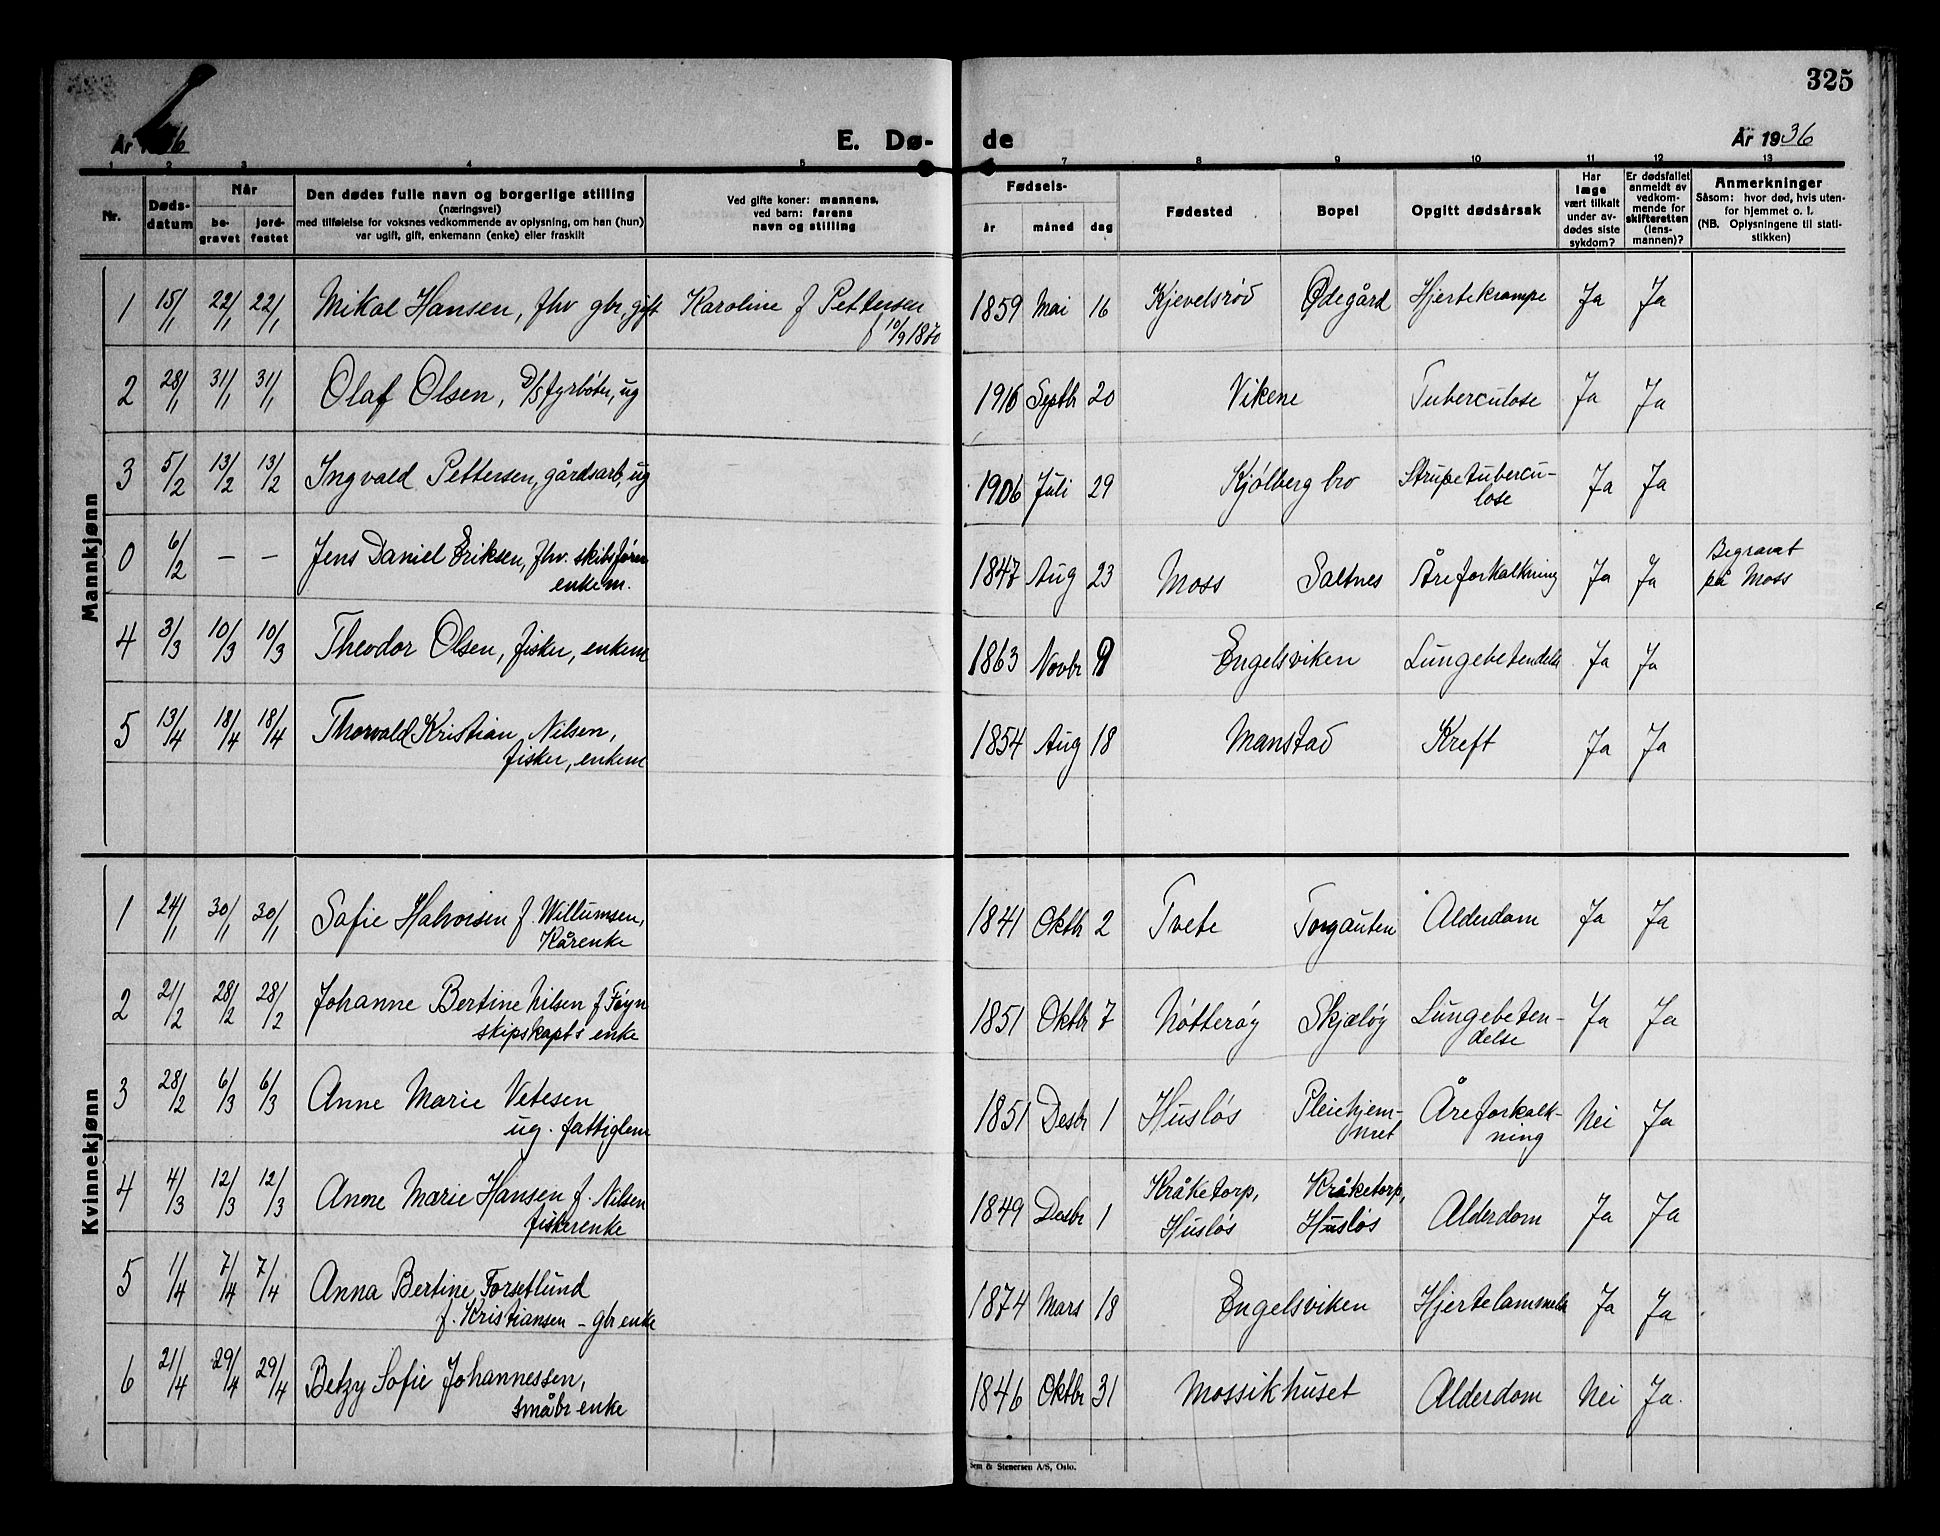 325
År 1 6 E. Dø- de År 1936
1 2 3 4 5 7 8 9 10 11 12 13
Nr.
Døds-
datum
Når
be-
gravet
jord-
festet
Den dødes fulle navn og borgerlige stilling
(næringsvei)
med tilføielse for voksnes vedkommende av oplysning, om han (hun)
var ugift, gift, enkemann (enke) eller fraskilt
Ved gifte koner: mannens,
ved barn: farens
navn og stilling
Fødsels-
år måned dag
Fødested
Bopel
Opgitt dødsårsak
Har
læge
vært tilkalt
under av-
dødes siste
sykdom?
Er dødsfallet
anmeldt av
vedkom-
mende for
skifteretten
(lens-
mannen)?
Anmerkninger
Såsom: hvor død, hvis uten-
for hjemmet o. l.
(NB. Oplysningene til stati-
stikken)
Mannkjønn
1 15/1 22/1 22/1 Mikal Hansen, fhv gbr, gift Karoline f Pettersen 1859 Mai 16 Kjevelsrød Ødegård Hjertekrampe Ja Ja
f 10/9 1870
2 28/1 31/1 31/1 Olaf Olsen, D/S fyrbøter, ug 1916 Septbr 20 Vikene Tuberculose Ja Ja
3 5/2 13/2 13/2 Ingvald Pettersen, gårdsarb, ug 1906 Juli 29 Kjølberg bro Strupetubercu-
lose Ja Ja
0 6/2 – – Jens Daniel Eriksen, fhv. skibsfører
enkem. 1847 Aug 23 Moss Saltnes Åreforkalkning Ja Ja Begravet
på Moss
4 3/3 10/3 10/3 Theodor Olsen, fisker, enkem 1863 Novbr 9 Engelsviken Lungebetendelse Ja Ja
5 13/4 18/4 18/4 Thorvald Kristian Nilsen,
fisker, enkem 1854 Aug 18 Manstad Kreft Ja Ja
Kvinnekjønn
1 24/1 30/1 30/1 Sofie Halvorsen f. Willumsen,
Kårenke 1841 Oktbr 2 Tvete Torgauten Alderdom Ja Ja
2 21/2 28/2 28/2 Johanne Bertine Nilsen f Føyn
skipskapts enke 1851 Oktbr 7 Nøtterøy Skjæløy Lungebeten-
delse Ja Ja
3 28/2 6/3 6/3 Anne Marie Vetesen
ug. fattiglem 1851 Desbr 1 Husløs Pleiehjem-
met Åreforkalk-
ning Nei Ja
4 4/3 12/3 12/3 Anne Marie Hansen f. Nilsen
fiskerenke 1849 Desbr 1 Kråketorp,
Husløs Kråketorp,
Husløs Alderdom Ja Ja
5 1/4 7/4 7/4 Anna Bertine Torsetlund
f. Kristiansen – gbr enke 1874 Mars 18 Engelsviken Hjertelammelse Ja Ja
6 21/4 29/4 29/4 Betzy Sofie Johannessen,
småbr enke 1846 Oktbr 31 Mossikhuset Alderdom Nei Ja.
Sem & Stenersen A/S, Oslo.